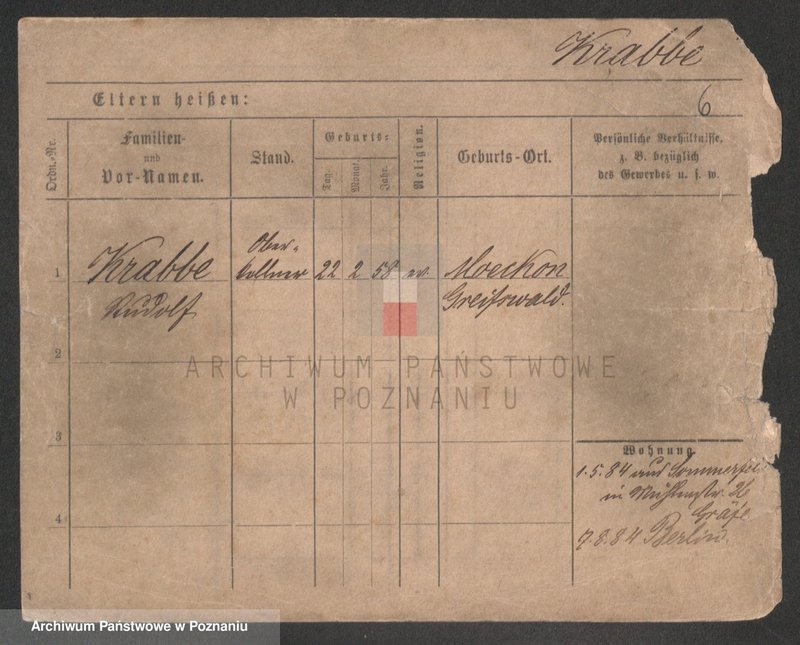 Krabbe
6
Eltern heißen:
Ordn.-Nr.
Familien-
und
Vor-Namen.
Stand.
Geburts-
Tag.
Monat.
Jahr.
Religion.
Geburts-Ort.
Persönliche Verhältnisse,
z. B. bezüglich
des Gewerbes u. s. w.
1
Krabbe
Rudolf
Ober-
kellner
22
2
58
ev.
Moeckon
Greifswald.
2
3
4
Wohnung.
1.5.84 aus
in Mühlenstr. 26
Gräfe
7.8.84 Berlin.
ARCHIWUM PAŃSTWOWE
W POZNANIU
Archiwum Państwowe w Poznaniu